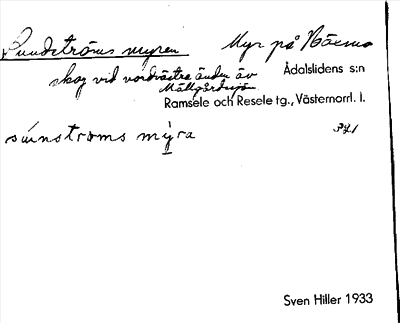 Sundströms myren Myr på Näsms
skog vid nordvästra änden av Ådalslidens s:n
Mällgårdsjön.
Ramsele och Resele tg., Västernorrl. l.
súnstroms mỳra
Sven Hiller 1933